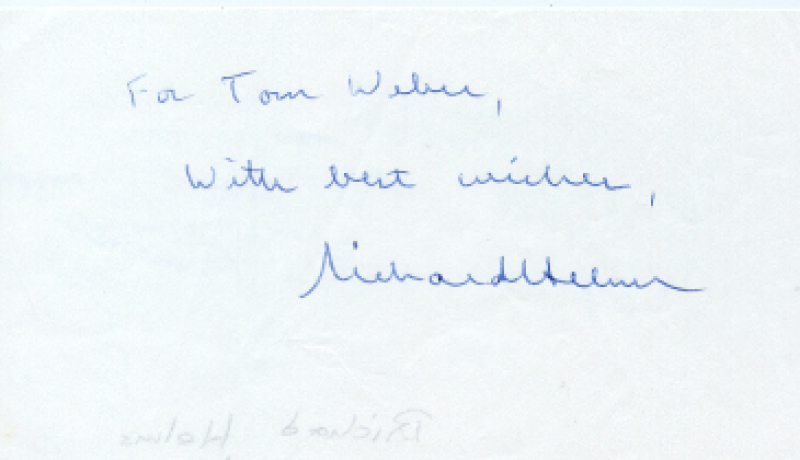 For Tom Weber,
With best wishes,
Richard Helms
Richard Helms